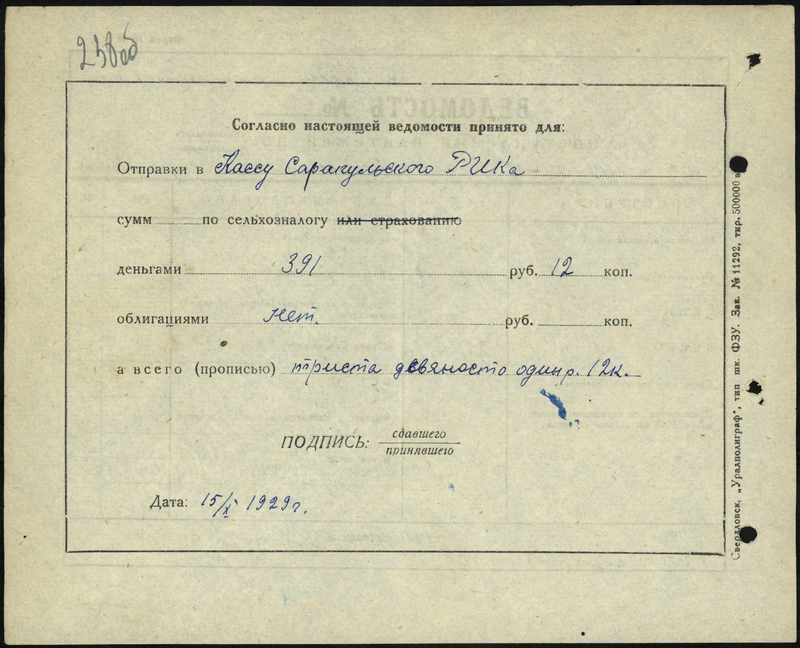 238об
Согласно настоящей ведомости принято для:
Отправки в Кассу Сарапульского РИКа
сумм по сельхозналогу или страхованию
деньгами 391 руб. 12 коп.
облигациями нет. руб. коп.
а всего (прописью) триста девяносто один р. 12 к.
ПОДПИСЬ: сдавшего
принявшего
Дата: 15/X 1929 г.
Свердловск, „Уралполиграф", тип шк. ФЗУ. Зак. № 11292, тир. 500000